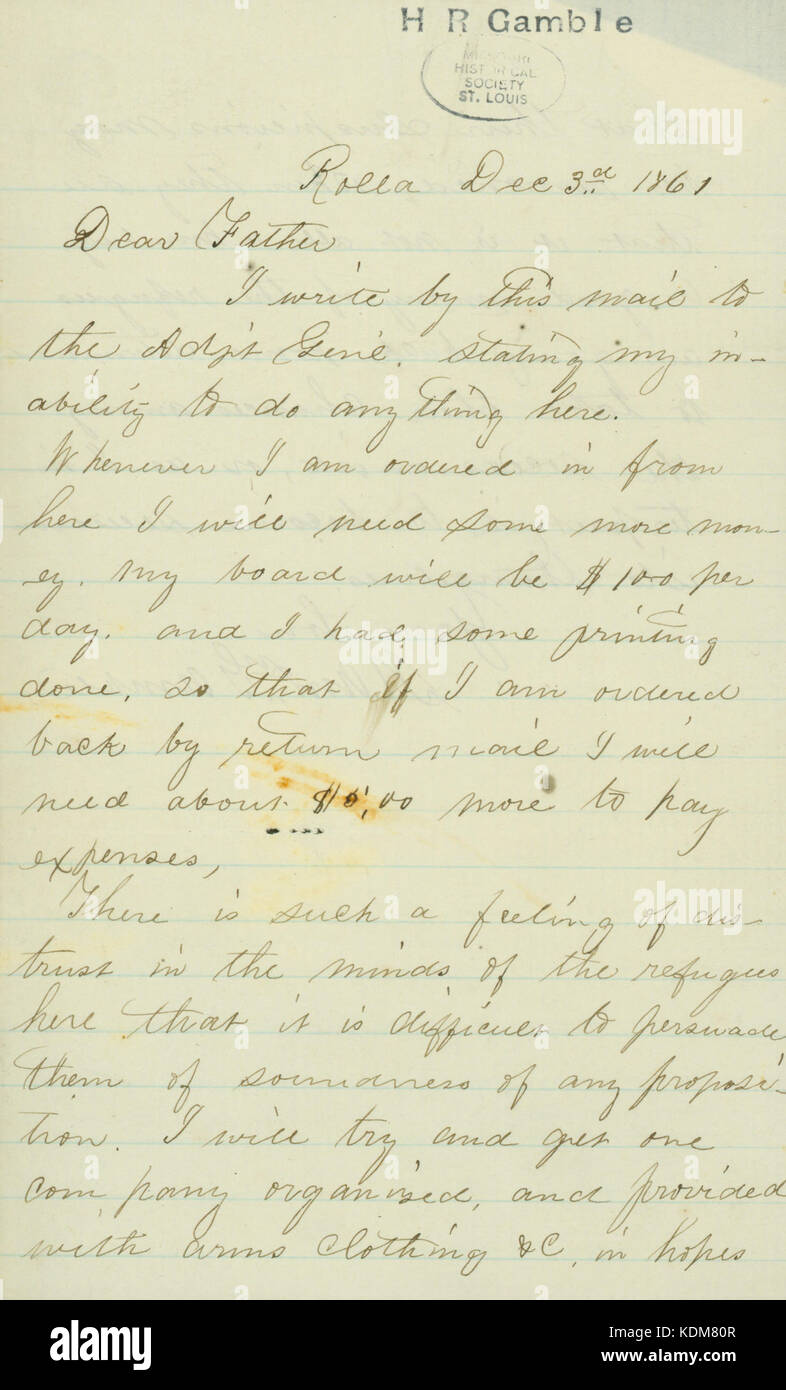 H R Gamble
MISSOURI
HISTORICAL
SOCIETY
ST. LOUIS
Rolla Dec 3d 1861
Dear Father
I write by this mail to
the Adj't Gen'l. stating my in-
ability to do anything here.
Whenever I am ordered in from
here I will need some more mon-
ey. My board will be $1.00 per
day. and I had some printing
done, so that if I am ordered
back by return mail I will
need about more to pay
expenses,
There is such a feeling of dis-
trust in the minds of the refugees
here that it is difficult to persuade
them of soundness of any proposi-
tion. I will try and get one
company organised, and provided
with arms clothing &c, in hopes
alamy
Image ID: KDM80R
www.alamy.com